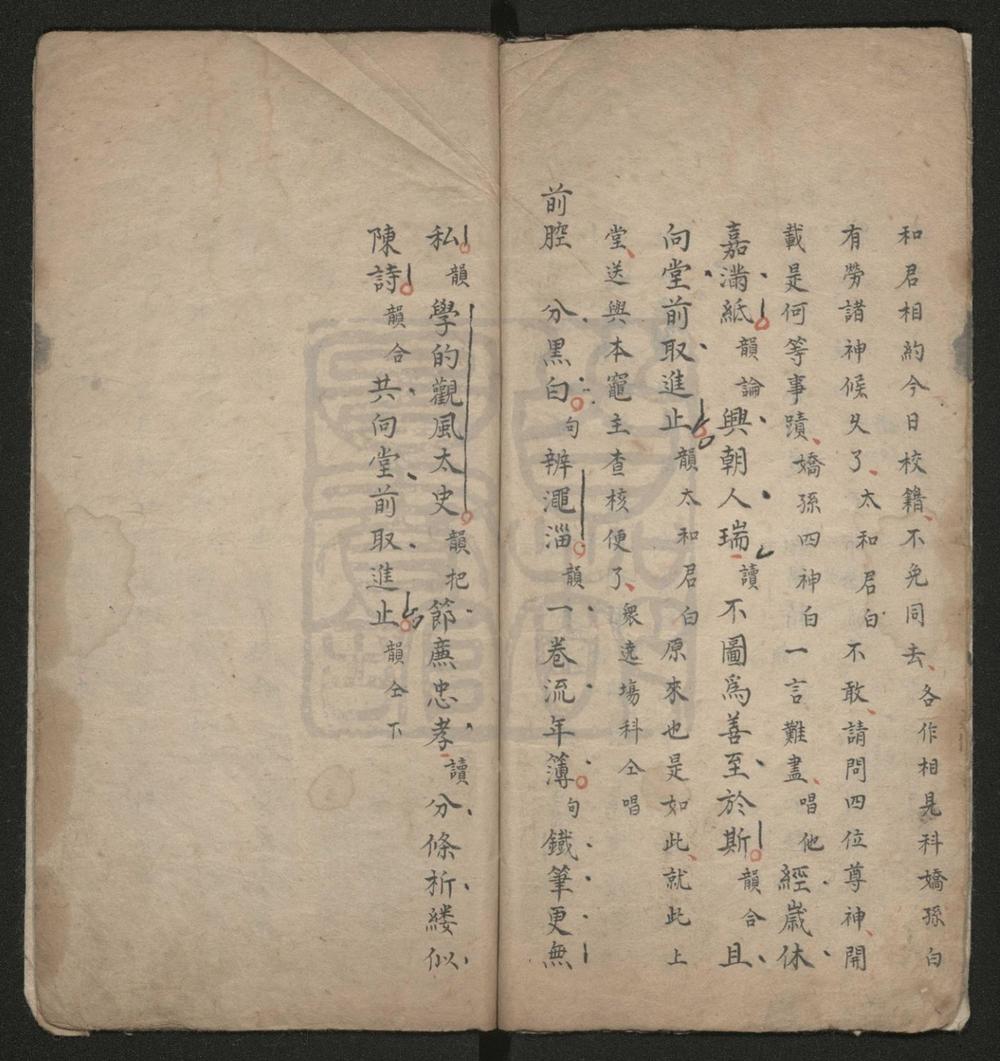 和君相約今日校籍不免同去各作相見科嬌孫白
有勞諸神候久了太和君白不敢請問四位尊神開
載是何等事蹟嬌孫四神白一言難盡唱他經歲休
嘉滿紙韻論興朝人瑞讀不圖爲善至於斯韻合且
向堂前取進止韻太和君白原來也是如此就此上
堂送與本竈主查核便了衆遶塲科仝唱
前腔 分黑白句辨澠淄韻一卷流年簿句鐵筆更無
私韻學的觀風太史韻把節廉忠孝讀分條析縷似
陳詩韻合共向堂前取進止韻仝下